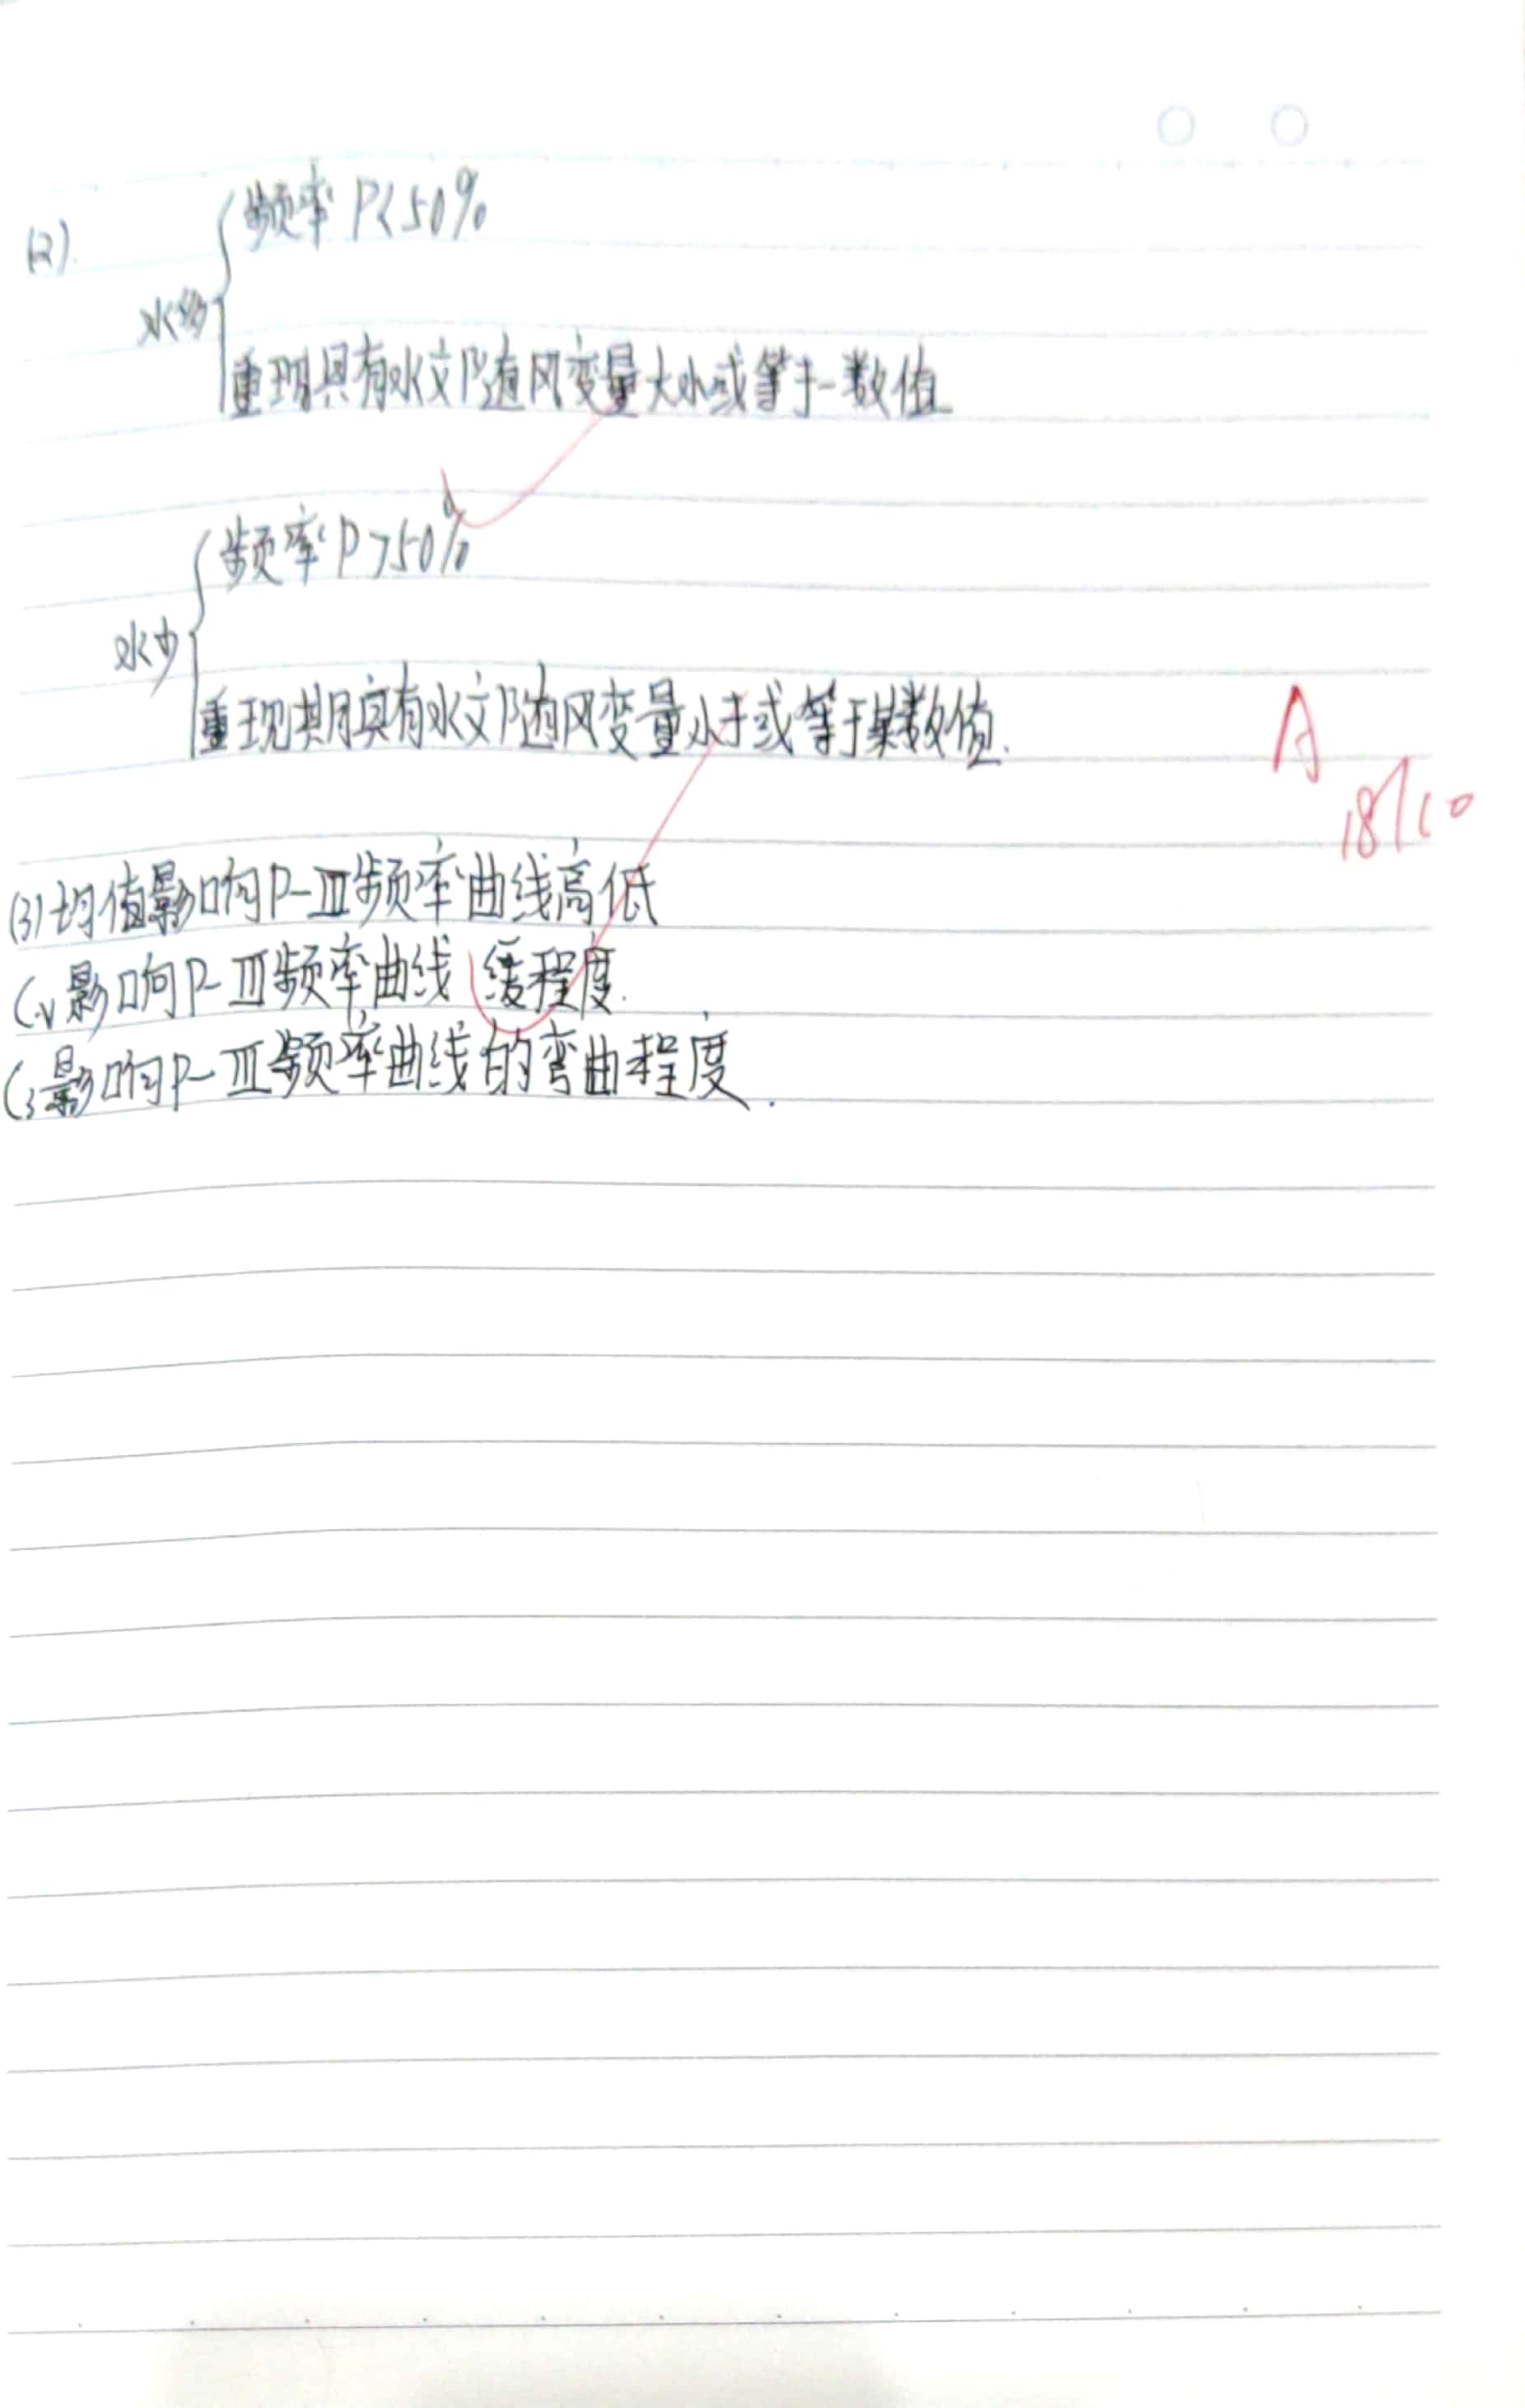 (2).
频率 P<50%
水多
重现具有水文随风变量大小或等于一数值
频率 P>50%
水少
重现期具有水文随风变量小于或等于某数值.
A
18/10
(3) 均值影响P-Ⅲ频率曲线高低
Cv影响P-Ⅲ频率曲线 缓程度.
Cs影响P-Ⅲ频率曲线的弯曲程度.